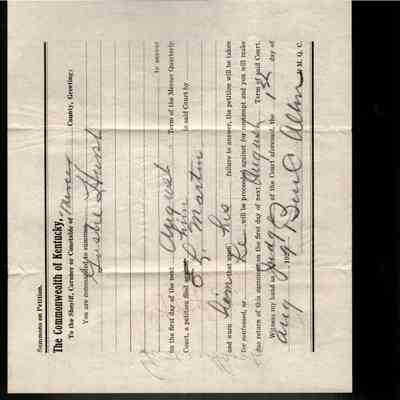 Summons on Petition.
The Commonwealth of Kentucky,
To the Sheriff, Coroner or Constable of Mercer County, Greeting:
You are commanded to summon
Hurst
to answer
on the first day of the next August Term of the Mercer Quarterly
Court, a petition filed in said Court by
Martin
and warn him that upon his failure to answer, the petition will be taken
for confessed, or he will be proceeded against for contempt and you will make
due return of this summons on the first day of next August Term of said Court.
Witness my hand as Judge of the Court aforesaid, the 1st day of
Aug 192 Ben C Allin M. Q. C.